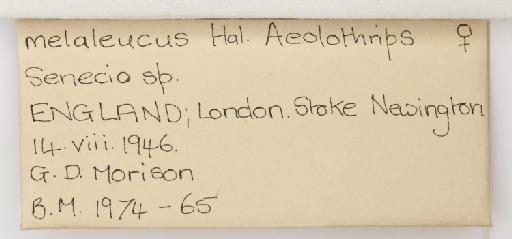 melaleucus Hal. Aeolothrips ♀
Senecio sp.
ENGLAND; London. Stoke Newington
14. viii. 1946.
G. D. Morison
B.M. 1974 - 65